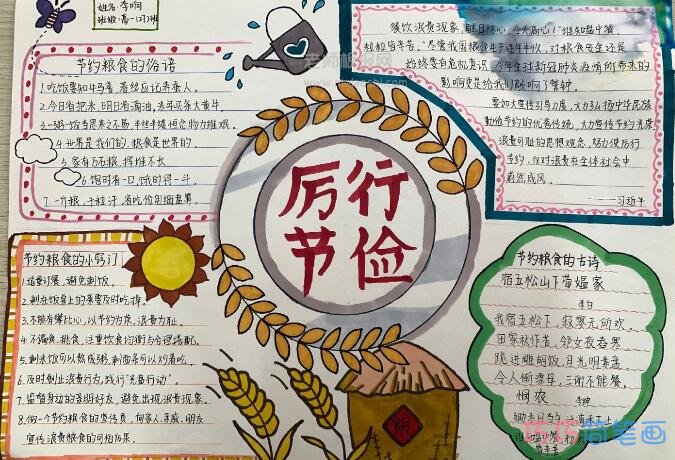 姓名:李响
班级:高一(7)班
节约粮食的俗语
1.吃饭要知牛马苦,着丝应记养蚕人。
2.今日省把米,明日省滴油,来年买条大黄牛。
3.一粥一饭当思来之不易,半丝半缕恒念物力维艰。
4.世界是我们的,粮食是世界的
5.家有万石粮,挥堆不长
6.饱时省一口,饿时得一斗。
7.一斤粮,千粒汗,省吃俭用细盘算。
餐饮浪费现象,触目惊心,令人痛心!"谁知盘中餐,
粒粒皆辛苦。"尽管我们粮食生产连年丰收,对粮食安全还是
始终要有危机意识,今年全球新冠肺炎疫情所带来的
影响更是给我们敲响了警钟。
要加大宣传引导力度,大力弘扬中华民族
勤俭节约的优秀传统,大力宣传节约光荣、
浪费可耻的思想观念,努力使厉行
节约、反对浪费在全体社会中
蔚然成风。
——习近平
厉行
节俭
节约粮食的小窍门
1.适量订餐,避免剩饭。
2.剩在饭桌上的菜要及时吃掉。
3.不能有攀比心,以节约为荣,浪费为耻。
4.不偏食、挑食,注重饮食均衡与合理搭配。
5.剩米饭可以熬成粥,剩面条可以炒着吃。
6.及时制止浪费行为,践行"光盘行动"。
7.监督身边的亲朋好友,避免出现浪费现象。
8.做一个节约粮食的宣传员,向家人、亲戚、朋友
宣传浪费粮食的可怕后果。
节约粮食的古诗
宿五松山下荀媪家
李白
我宿五松下,寂寥无所欢。
田家秋作苦,邻女夜舂寒
跪进雕胡饭,月光明素盘
令人惭漂母,三谢不能餐
悯农
李绅
锄禾日当午
粮
巧巧简笔画